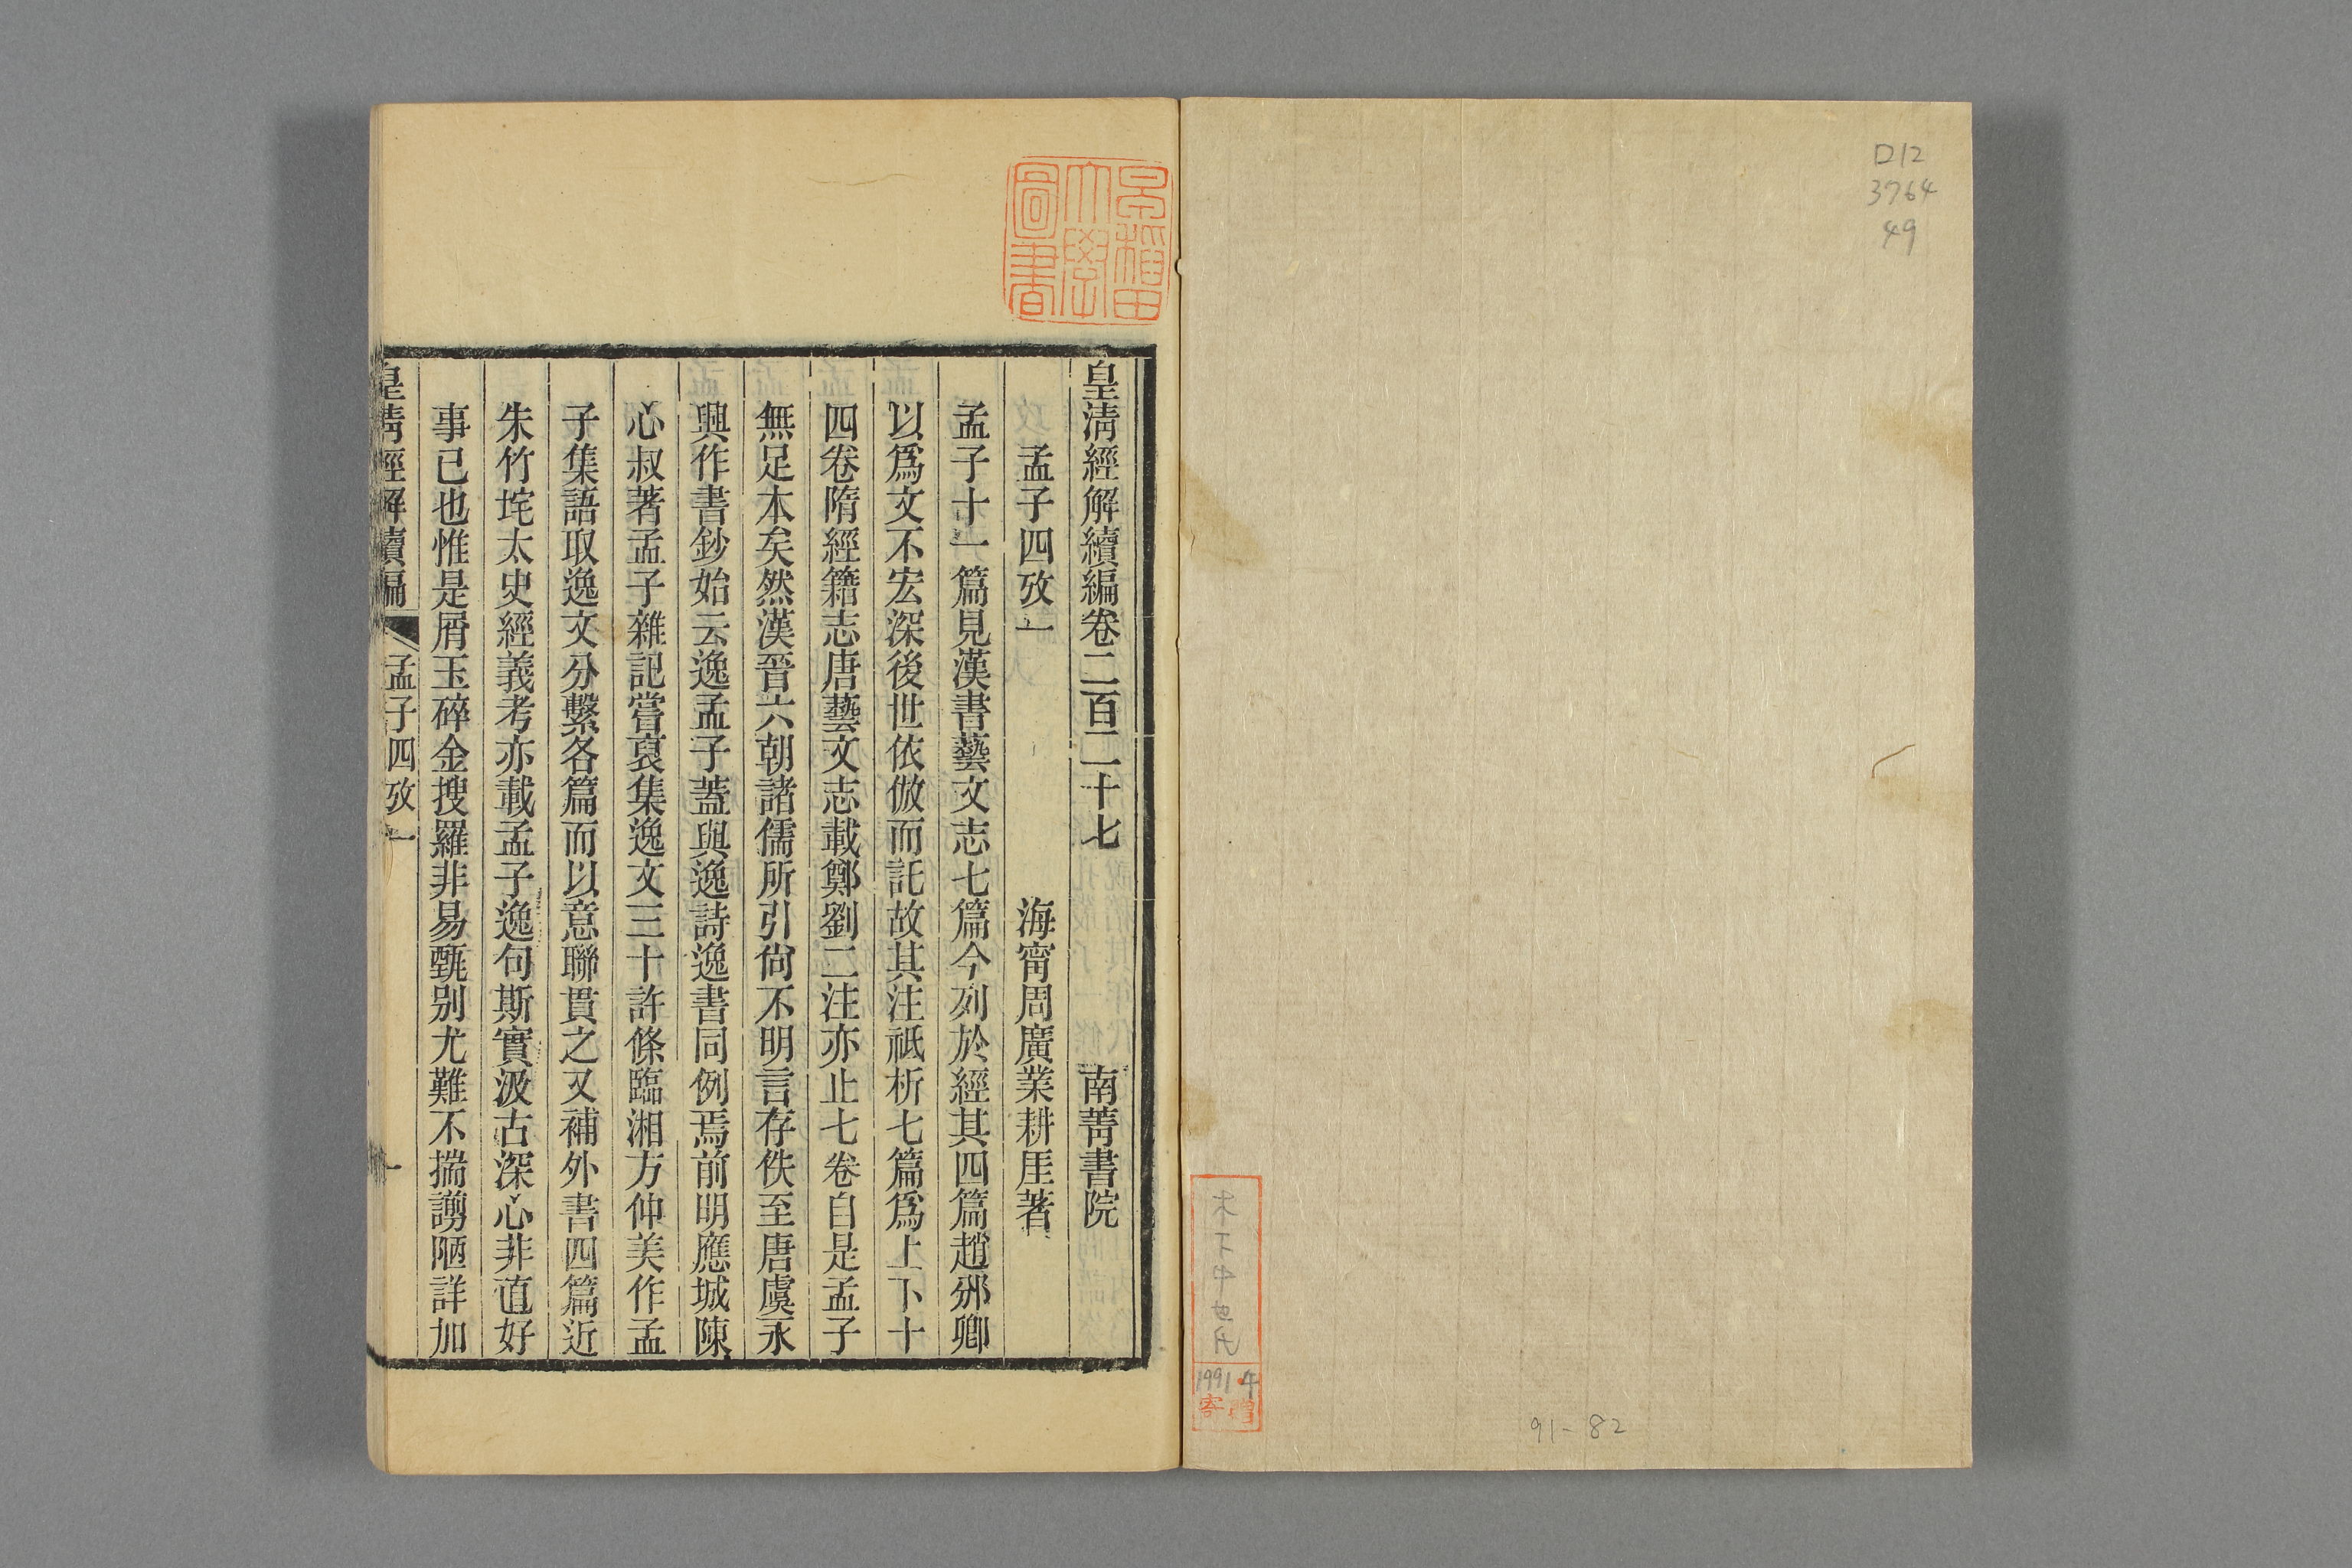 D12
3764
49
木下中也氏
1991.4
寄贈
91-82
早稲田
大學
圖書
皇清經解續編卷二百二十七 南菁書院
孟子四攷一 海甯周廣業耕厓著
孟子十一篇見漢書藝文志七篇今列於經其四篇趙邠卿
以爲文不宏深後世依倣而託故其注祗析七篇爲上下十
四卷隋經籍志唐藝文志載鄭劉二注亦止七卷自是孟子
無足本矣然漢晉六朝諸儒所引尙不明言存佚至唐虞永
興作書鈔始云逸孟子蓋與逸詩逸書同例焉前明應城陳
心叔著孟子雜記嘗裒集逸文三十許條臨湘方仲美作孟
子集語取逸文分繫各篇而以意聯貫之又補外書四篇近
朱竹垞太史經義考亦載孟子逸句斯實汲古深心非値好
事已也惟是屑玉碎金搜羅非易甄别尤難不揣謭陋詳加
皇清經解續編 孟子四攷一 一